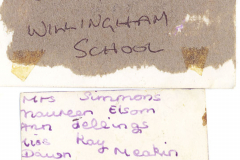 WILLINGHAM
SCHOOL
Mrs Simmons
Maureen Elsom
Ann Jellings
Liss Kay
Dawn Meakin